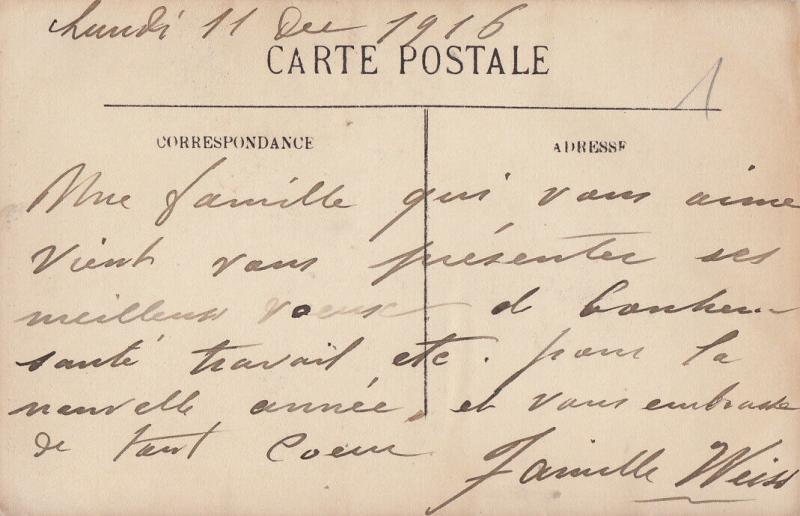 Lundi 11 Dec 1916
CARTE POSTALE
1
CORRESPONDANCE
ADRESSE
Une famille qui vous aime
vient vous présenter ses
meilleurs voeux de bonheur
santé travail etc. pour la
nouvelle année, et vous embrasse
de tout coeur
Famille Weiss